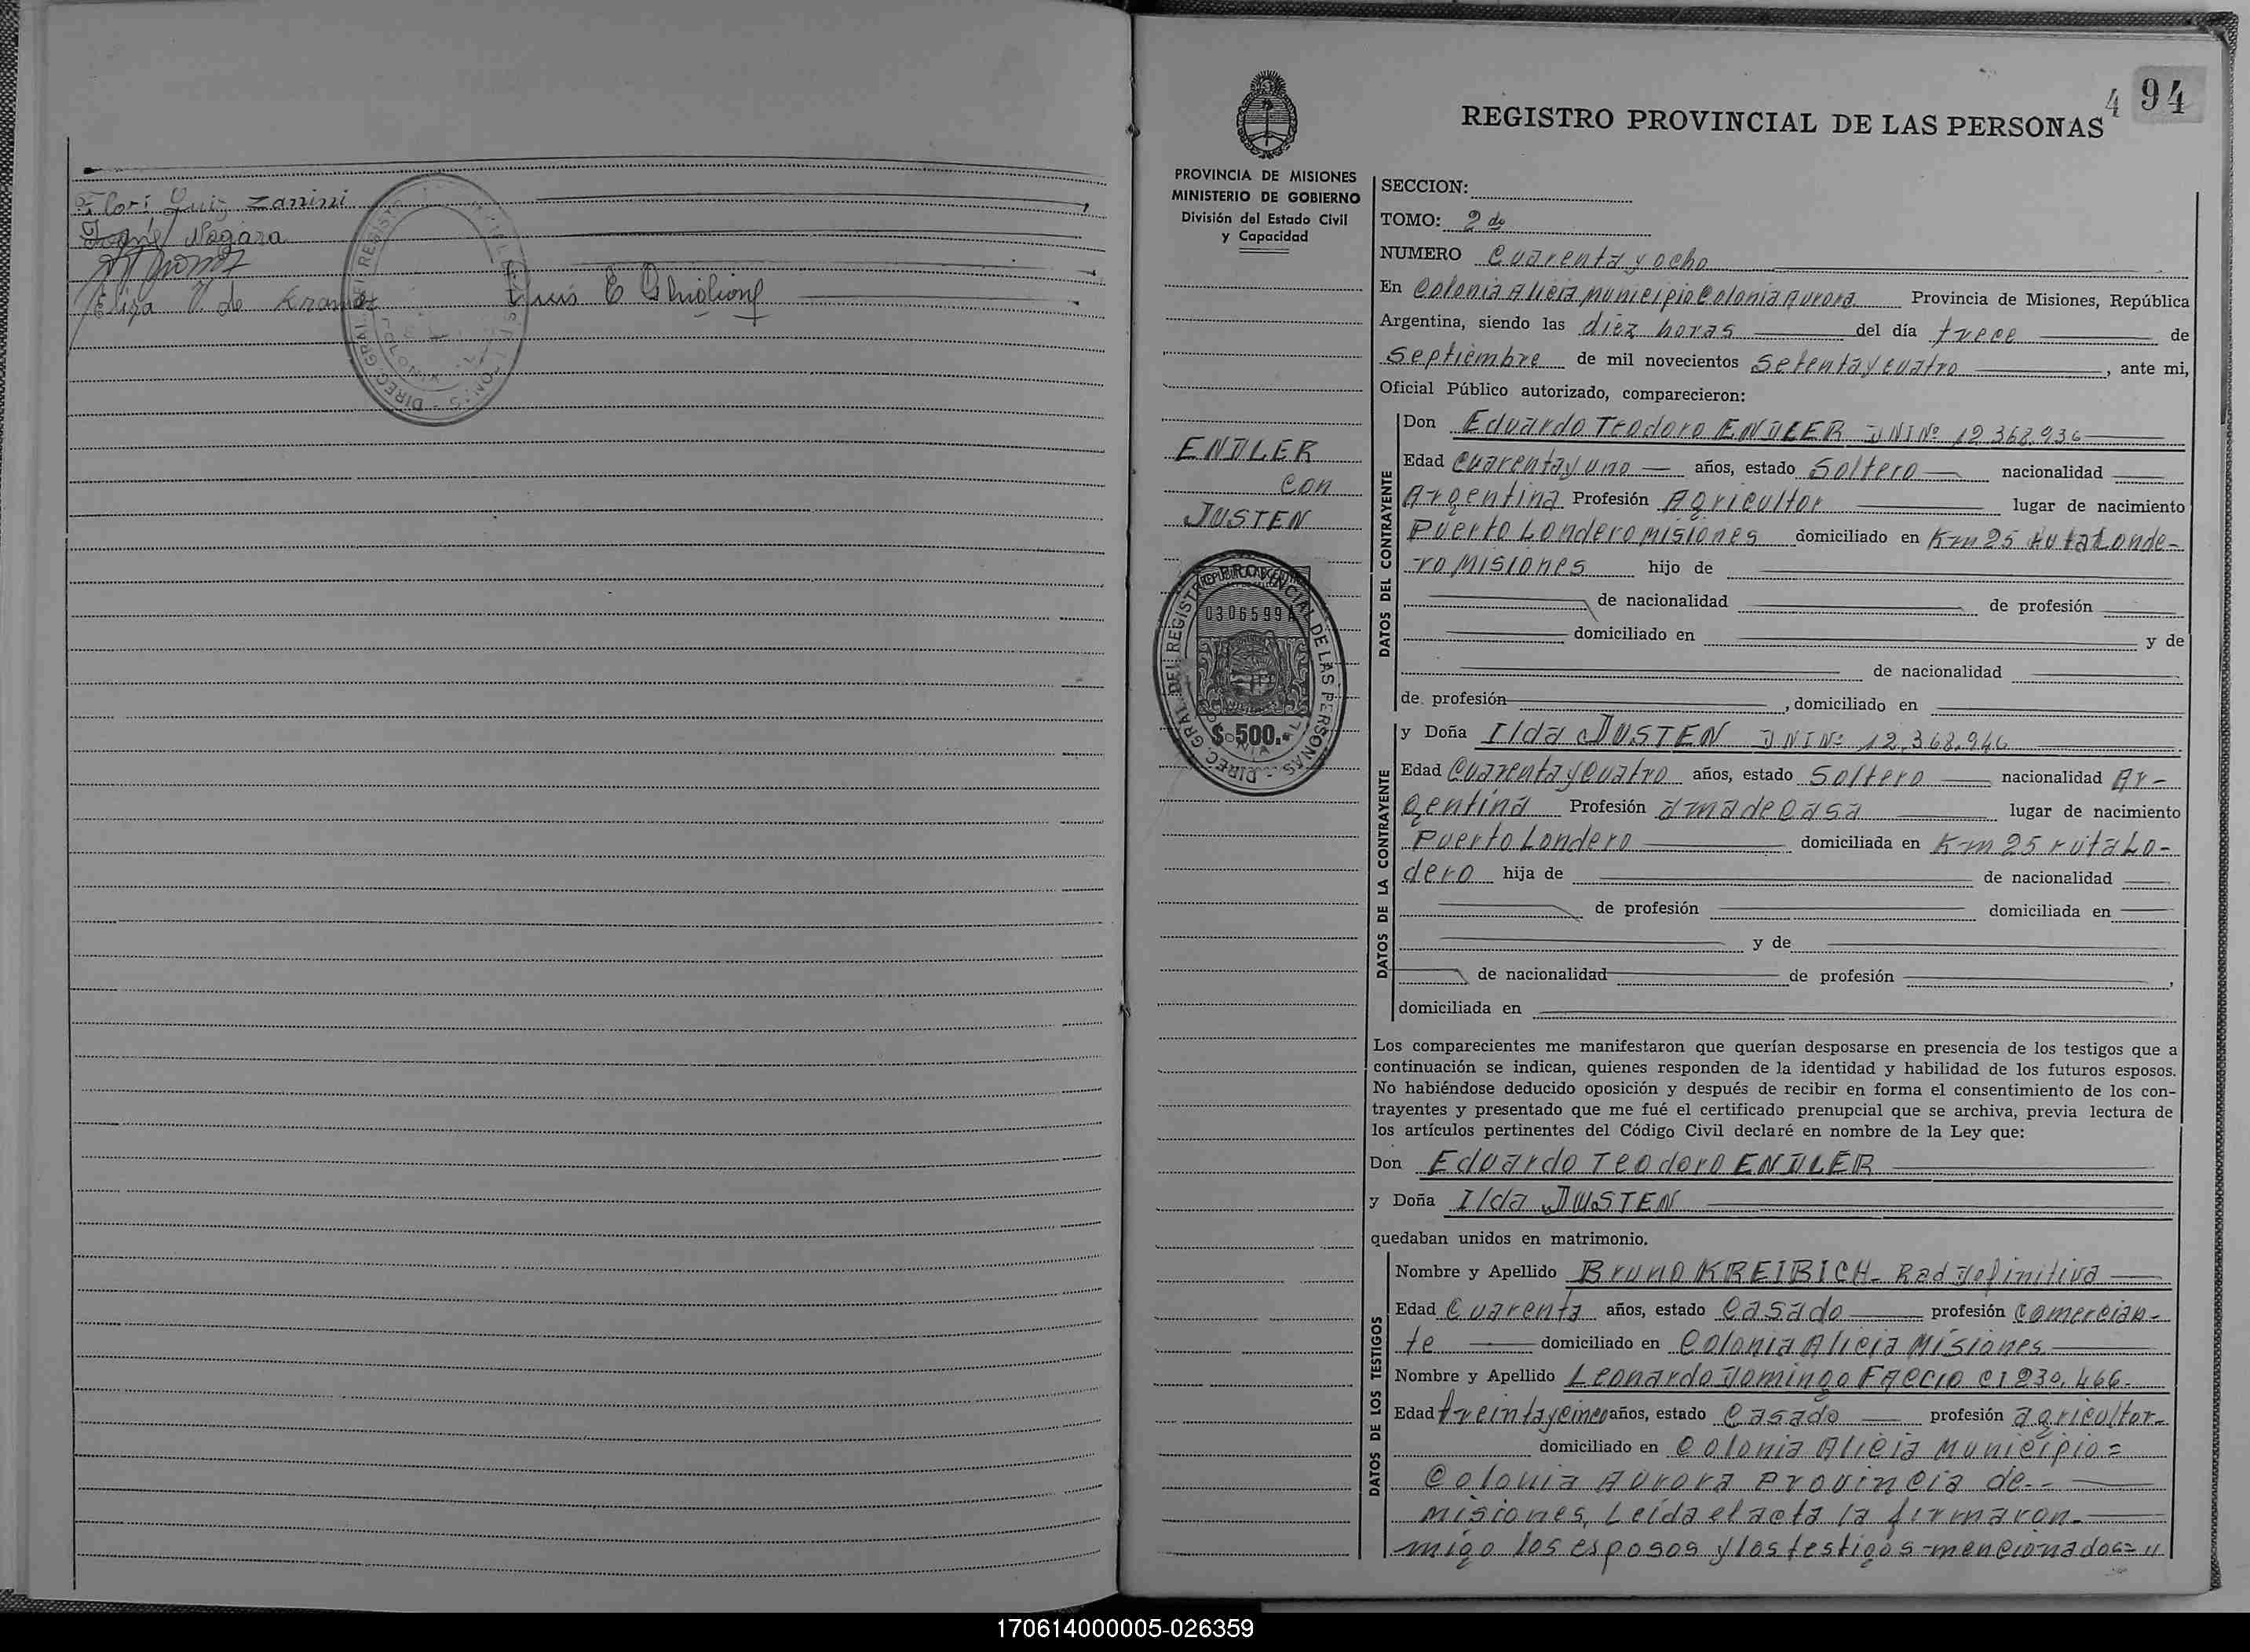 Flori Luiz Zanini
Nogara
Elisa V. de Kramer
Luis E Ghiglione
4 94
REGISTRO PROVINCIAL DE LAS PERSONAS
PROVINCIA DE MISIONES
MINISTERIO DE GOBIERNO
División del Estado Civil
y Capacidad
ENDLER
con
JUSTEN
DIREC. GRAL. DEL REGISTRO PROVINCIAL DE LAS PERSONAS
0306599A
$ 500.-
SECCION:
TOMO: 2do
NUMERO Cuarenta y ocho
En Colonia Alicia municipio Colonia Aurora Provincia de Misiones, República
Argentina, siendo las diez horas del día trece de
Septiembre de mil novecientos Setenta y cuatro, ante mi,
Oficial Público autorizado, comparecieron:
DATOS DEL CONTRAYENTE
Don Eduardo Teodoro ENDLER DNI Nº 12.368.936
Edad Cuarenta y uno años, estado Soltero nacionalidad
Argentina Profesión Agricultor lugar de nacimiento
Puerto Londero misiones domiciliado en Km 25 Ruta Londe-
ro Misiones hijo de
de nacionalidad de profesión
domiciliado en y de
de nacionalidad
de profesión, domiciliado en
DATOS DE LA CONTRAYENTE
y Doña Ilda JUSTEN DNI Nº 12.368.946
Edad Cuarenta y cuatro años, estado Soltero nacionalidad Ar-
gentina Profesión ama de casa lugar de nacimiento
Puerto Londero domiciliada en Km 25 ruta Lo-
dero hija de de nacionalidad
de profesión domiciliada en
y de
de nacionalidad de profesión,
domiciliada en
Los comparecientes me manifestaron que querían desposarse en presencia de los testigos que a
continuación se indican, quienes responden de la identidad y habilidad de los futuros esposos.
No habiéndose deducido oposición y después de recibir en forma el consentimiento de los con-
trayentes y presentado que me fué el certificado prenupcial que se archiva, previa lectura de
los artículos pertinentes del Código Civil declaré en nombre de la Ley que:
Don Eduardo Teodoro ENDLER
y Doña Ilda JUSTEN
quedaban unidos en matrimonio.
DATOS DE LOS TESTIGOS
Nombre y Apellido Bruno KREIBICH- Rad Definitiva
Edad Cuarenta años, estado Casado profesión comercian-
te domiciliado en Colonia Alicia Misiones
Nombre y Apellido Leonardo Domingo FACCIO CI 230.466-
Edad treinta y cinco años, estado Casado profesión agricultor-
domiciliado en Colonia Alicia Municipio=
Colonia Aurora Provincia de--
misiones, Leída el acta la firmaron-
migo los esposos y los testigos mencionados="
170614000005-026359